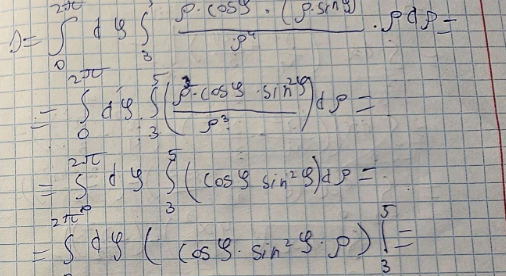 ∫₀^2π dφ ∫₃ (ρ·cosφ·(ρ·sinφ) / ρ⁴) · ρ dρ =
= ∫₀^2π dφ ∫₃^5 (ρ³·cosφ·sin²φ / ρ³) dρ =
= ∫₀^2π dφ ∫₃^5 (cosφ sin²φ) dρ =
= ∫₀^2π dφ (cosφ·sin²φ·ρ) |₃^5 =